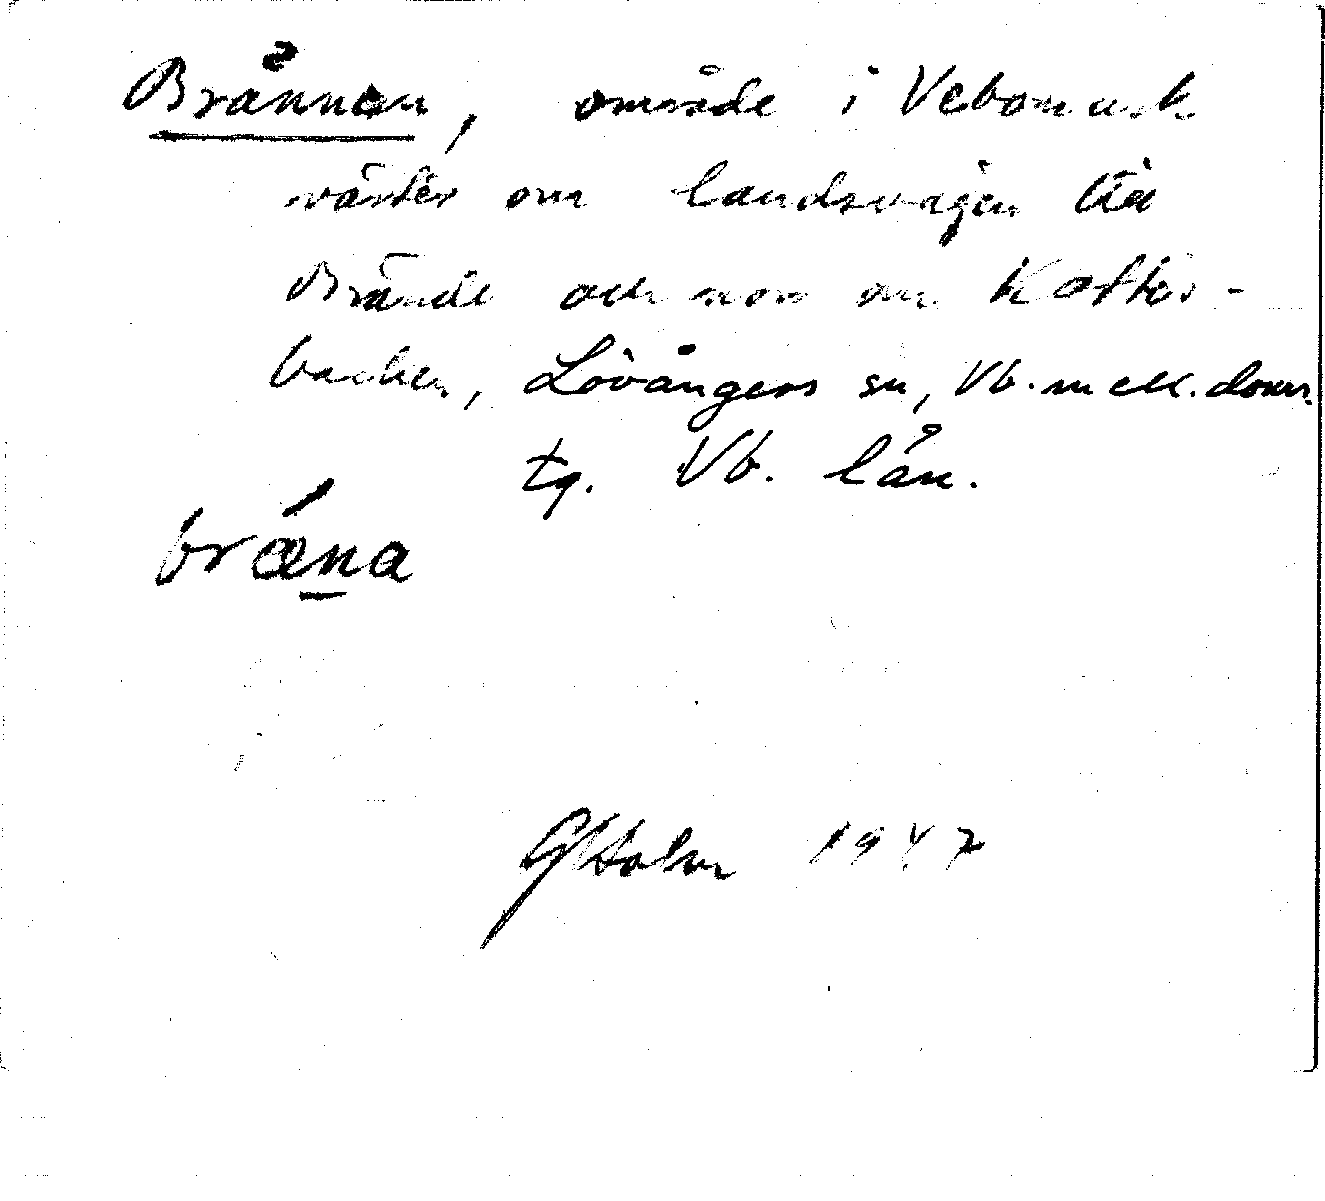 Brännan, område i Vebomark
väster om landsvägen till
Brände och norr om Katter-
backen, Lövångers sn, Vb. mell. doms.
tg. Vb. län.
bræ´na
GHolm 1947